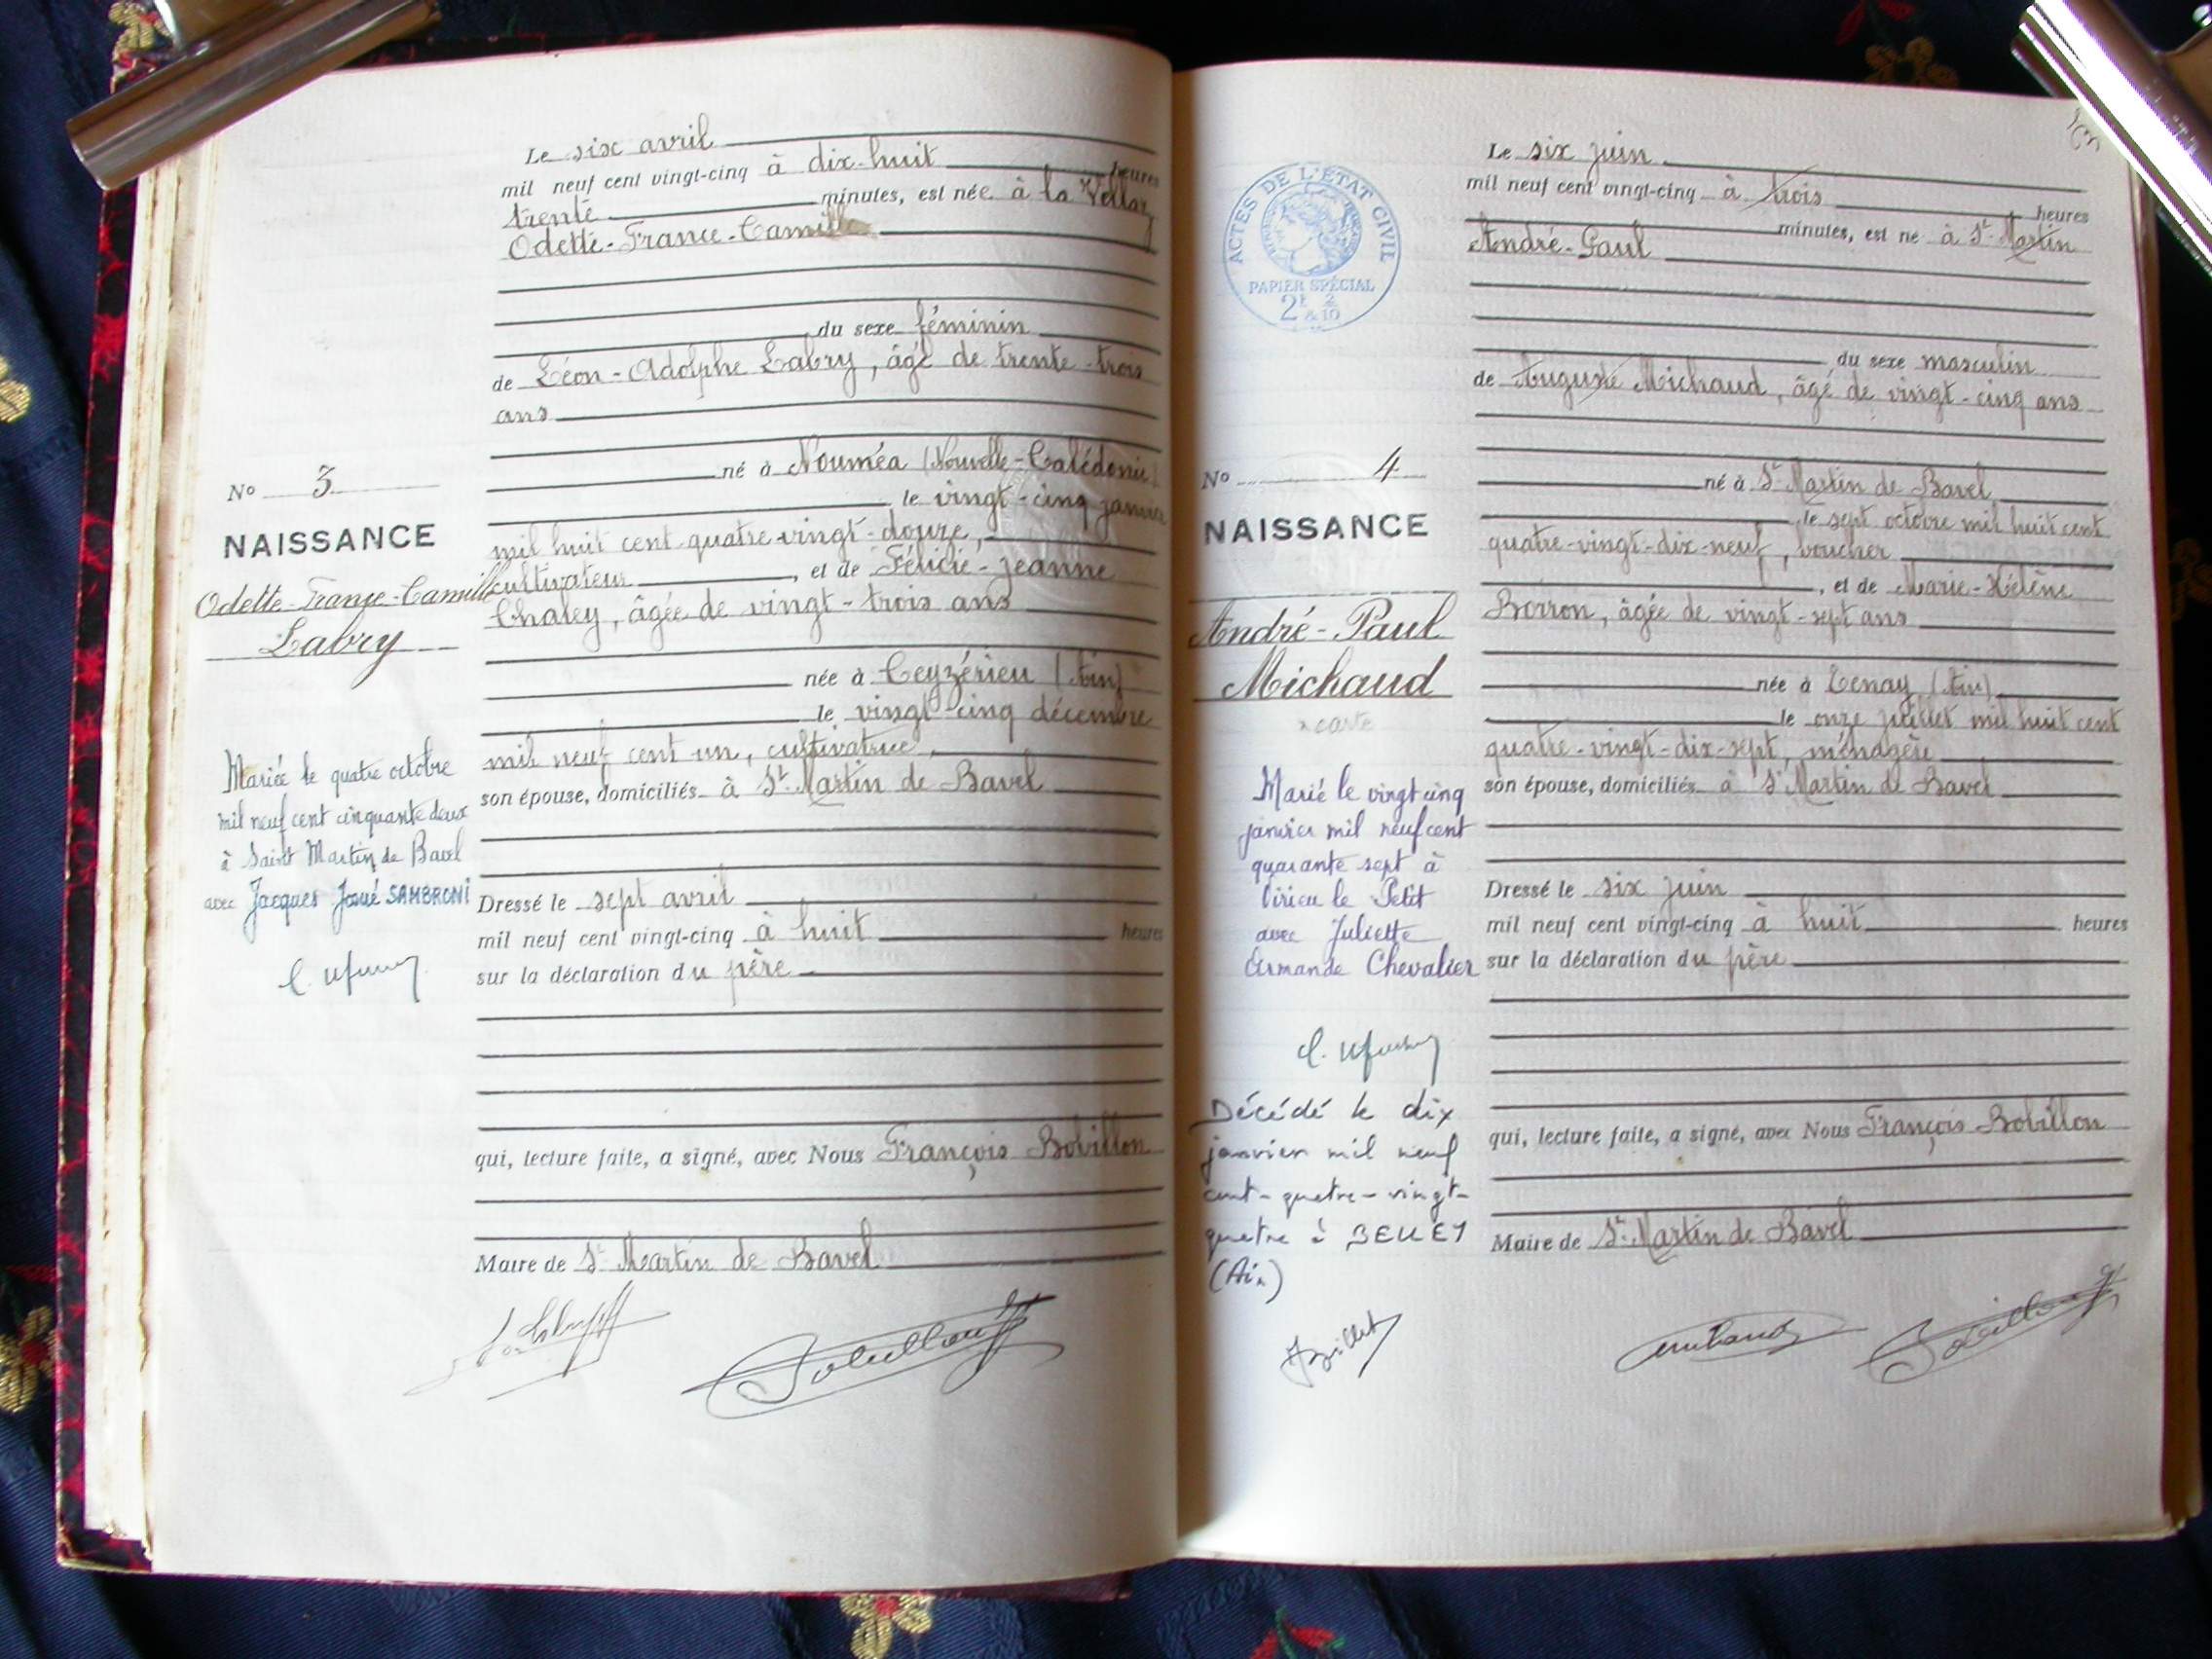 Le six avril
mil neuf cent vingt-cinq à dix-huit heures
trente minutes, est née à la Vellaz
Odette-France-Camille
du sexe féminin
de Léon-Adolphe Labry, âgé de trente-trois
ans
né à Nouméa (Nouvelle-Calédonie)
le vingt-cinq janvier
mil huit cent quatre-vingt-douze,
cultivateur, et de Félicie-Jeanne
Chaley, âgée de vingt-trois ans
née à Ceyzérieu (Ain)
le vingt-cinq décembre
mil neuf cent un, cultivatrice,
son épouse, domiciliés à St Martin de Bavel
Dressé le sept avril
mil neuf cent vingt-cinq à huit heures
sur la déclaration du père
qui, lecture faite, a signé, avec Nous François Bobillon
Maire de St Martin de Bavel
Bobillon
No 3
NAISSANCE
Odette-France-Camille
Labry
Mariée le quatre octobre
mil neuf cent cinquante deux
à Saint Martin de Bavel
avec Jacques Josué SAMBRONI
ACTES DE L'ÉTAT CIVIL
PAPIER SPÉCIAL
2f & 2/10
No 4
NAISSANCE
André-Paul
Michaud
Marié le vingt cinq
janvier mil neuf cent
quarante sept à
Virieu le Petit
avec Juliette
Armande Chevalier
Décédé le dix
janvier mil neuf
cent-quatre-vingt-
quatre à BELLEY
(Ain)
Le six juin
mil neuf cent vingt-cinq à trois heures
minutes, est né à St Martin
André-Paul
du sexe masculin
de Auguste Michaud, âgé de vingt-cinq ans
né à St Martin de Bavel
le sept octobre mil huit cent
quatre-vingt-dix-neuf, boucher
, et de Marie-Hélène
Borron, âgée de vingt-sept ans
née à Tenay (Ain)
le onze juillet mil huit cent
quatre-vingt-dix-sept, ménagère
son épouse, domiciliés à St Martin de Bavel
Dressé le six juin
mil neuf cent vingt-cinq à huit heures
sur la déclaration du père
qui, lecture faite, a signé, avec Nous François Bobillon
Maire de St Martin de Bavel
Michaud Bobillon